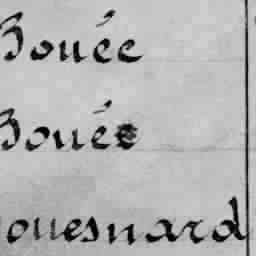 Bouée
Bouée
ouesnard